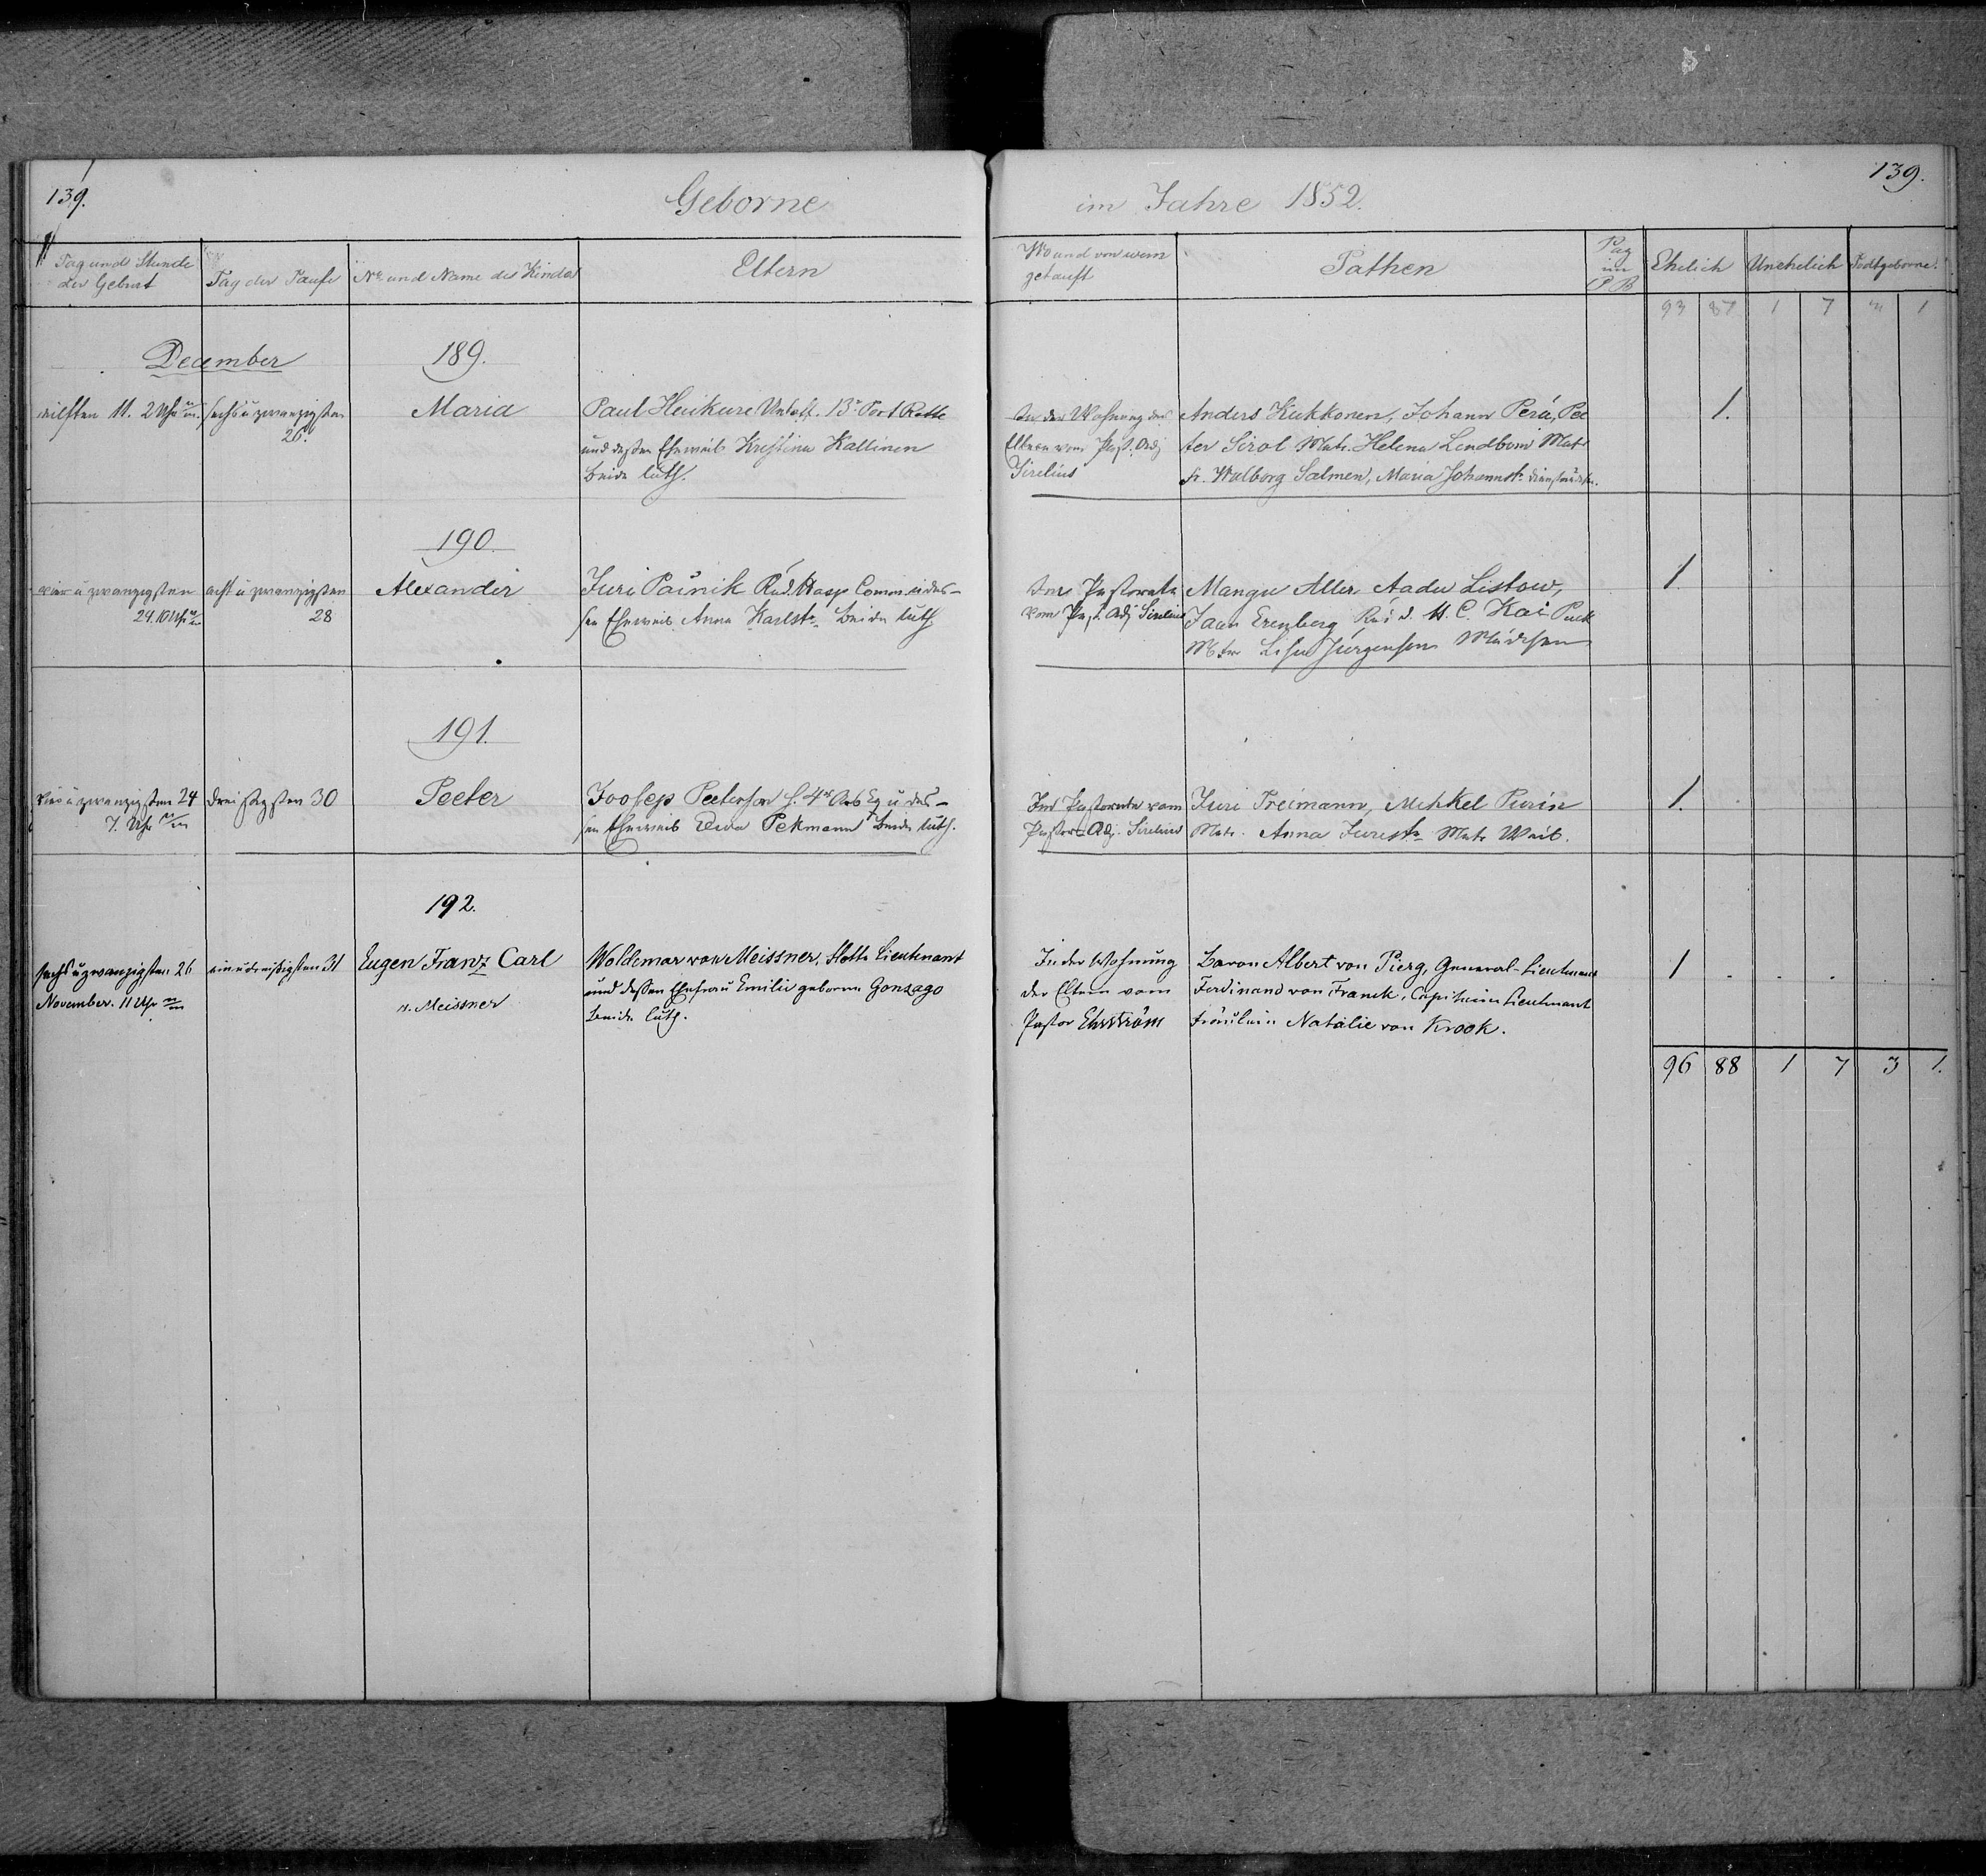 139.
Geborne
im Jahre 1852.
139.
Tag und Stunde der Geburt
Tag der Taufe
No und Name des Kindes
Eltern
Wo und von wem getauft
Pathen
Pag im PB
Ehelich
Unehelich
Todtgeborne.
93 87 1 7 3 1
December
189.
eilften 11. 2 Uhr
sechs u zwanzigsten
26.
Maria
Paul Heikure Unteff. 13r Port Rotte
und dessen Eheweib Kristina Kallinen
beide luth.
In der Wohnung der
Eltern vom Past. Adj
Sirelius
Anders Kukkonen, Johann Perä, Pee
ter Sirol Matr. Helena Lendbom Matr
fr. Walborg Salmen, Maria Johannstr
1.
190.
vier u zwanzigsten
24. 10 Uhr
acht u zwanzigsten
28
Alexander
Juri Painik Comm. u des-
sen Eheweib Anna Karlstr beide luth
Im Pastorate
vom Past. Adj Sirelius
Mangu Aller Aadu Listow,
Jaan Erenberg H. C. Kai
Lisu Jürgensen Mädchen
1
191.
vier u zwanzigsten 24
7. Uhr
dreisigsten 30
Peeter
Joosep Peeterson 4r Arb Eq u des-
sen Eheweib Ewa Pekmann beide luth.
Im Pastorate vom
Pastor-Adj. Sirelius
Juri Preimann, Mihkel Purin
Matr. Anna Jurestr Matr Weib.
1.
192.
sechs u zwanzigsten 26
November. 11 Uhr
ein u dreißigsten 31
Eugen Franz Carl
v. Meissner
Woldemar von Meissner, Flotte Lieutenant
und dessen Ehefrau Emilie geborne Gonzago
beide luth.
In der Wohnung
der Eltern vom
Pastor Ehrström
Baron Albert von Pierg, General-Lieutenant
Ferdinand von Franck, Capitain Lieutenant
Fräulein Natalie von Krook.
1
96 88 1 7 3 1.